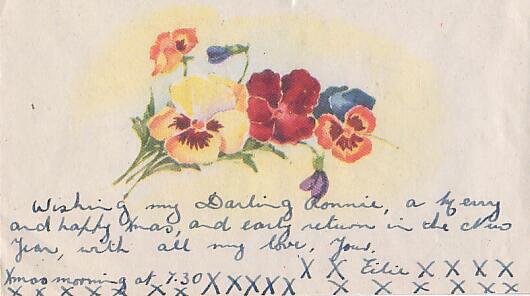 Wishing my Darling Ronnie, a Merry
and happy Xmas, and early return in the New
Year, with all my love, Yours,
Xmas morning at 7.30 X X X X X X X Eilie X X X X
X X X X X X X X X X X X